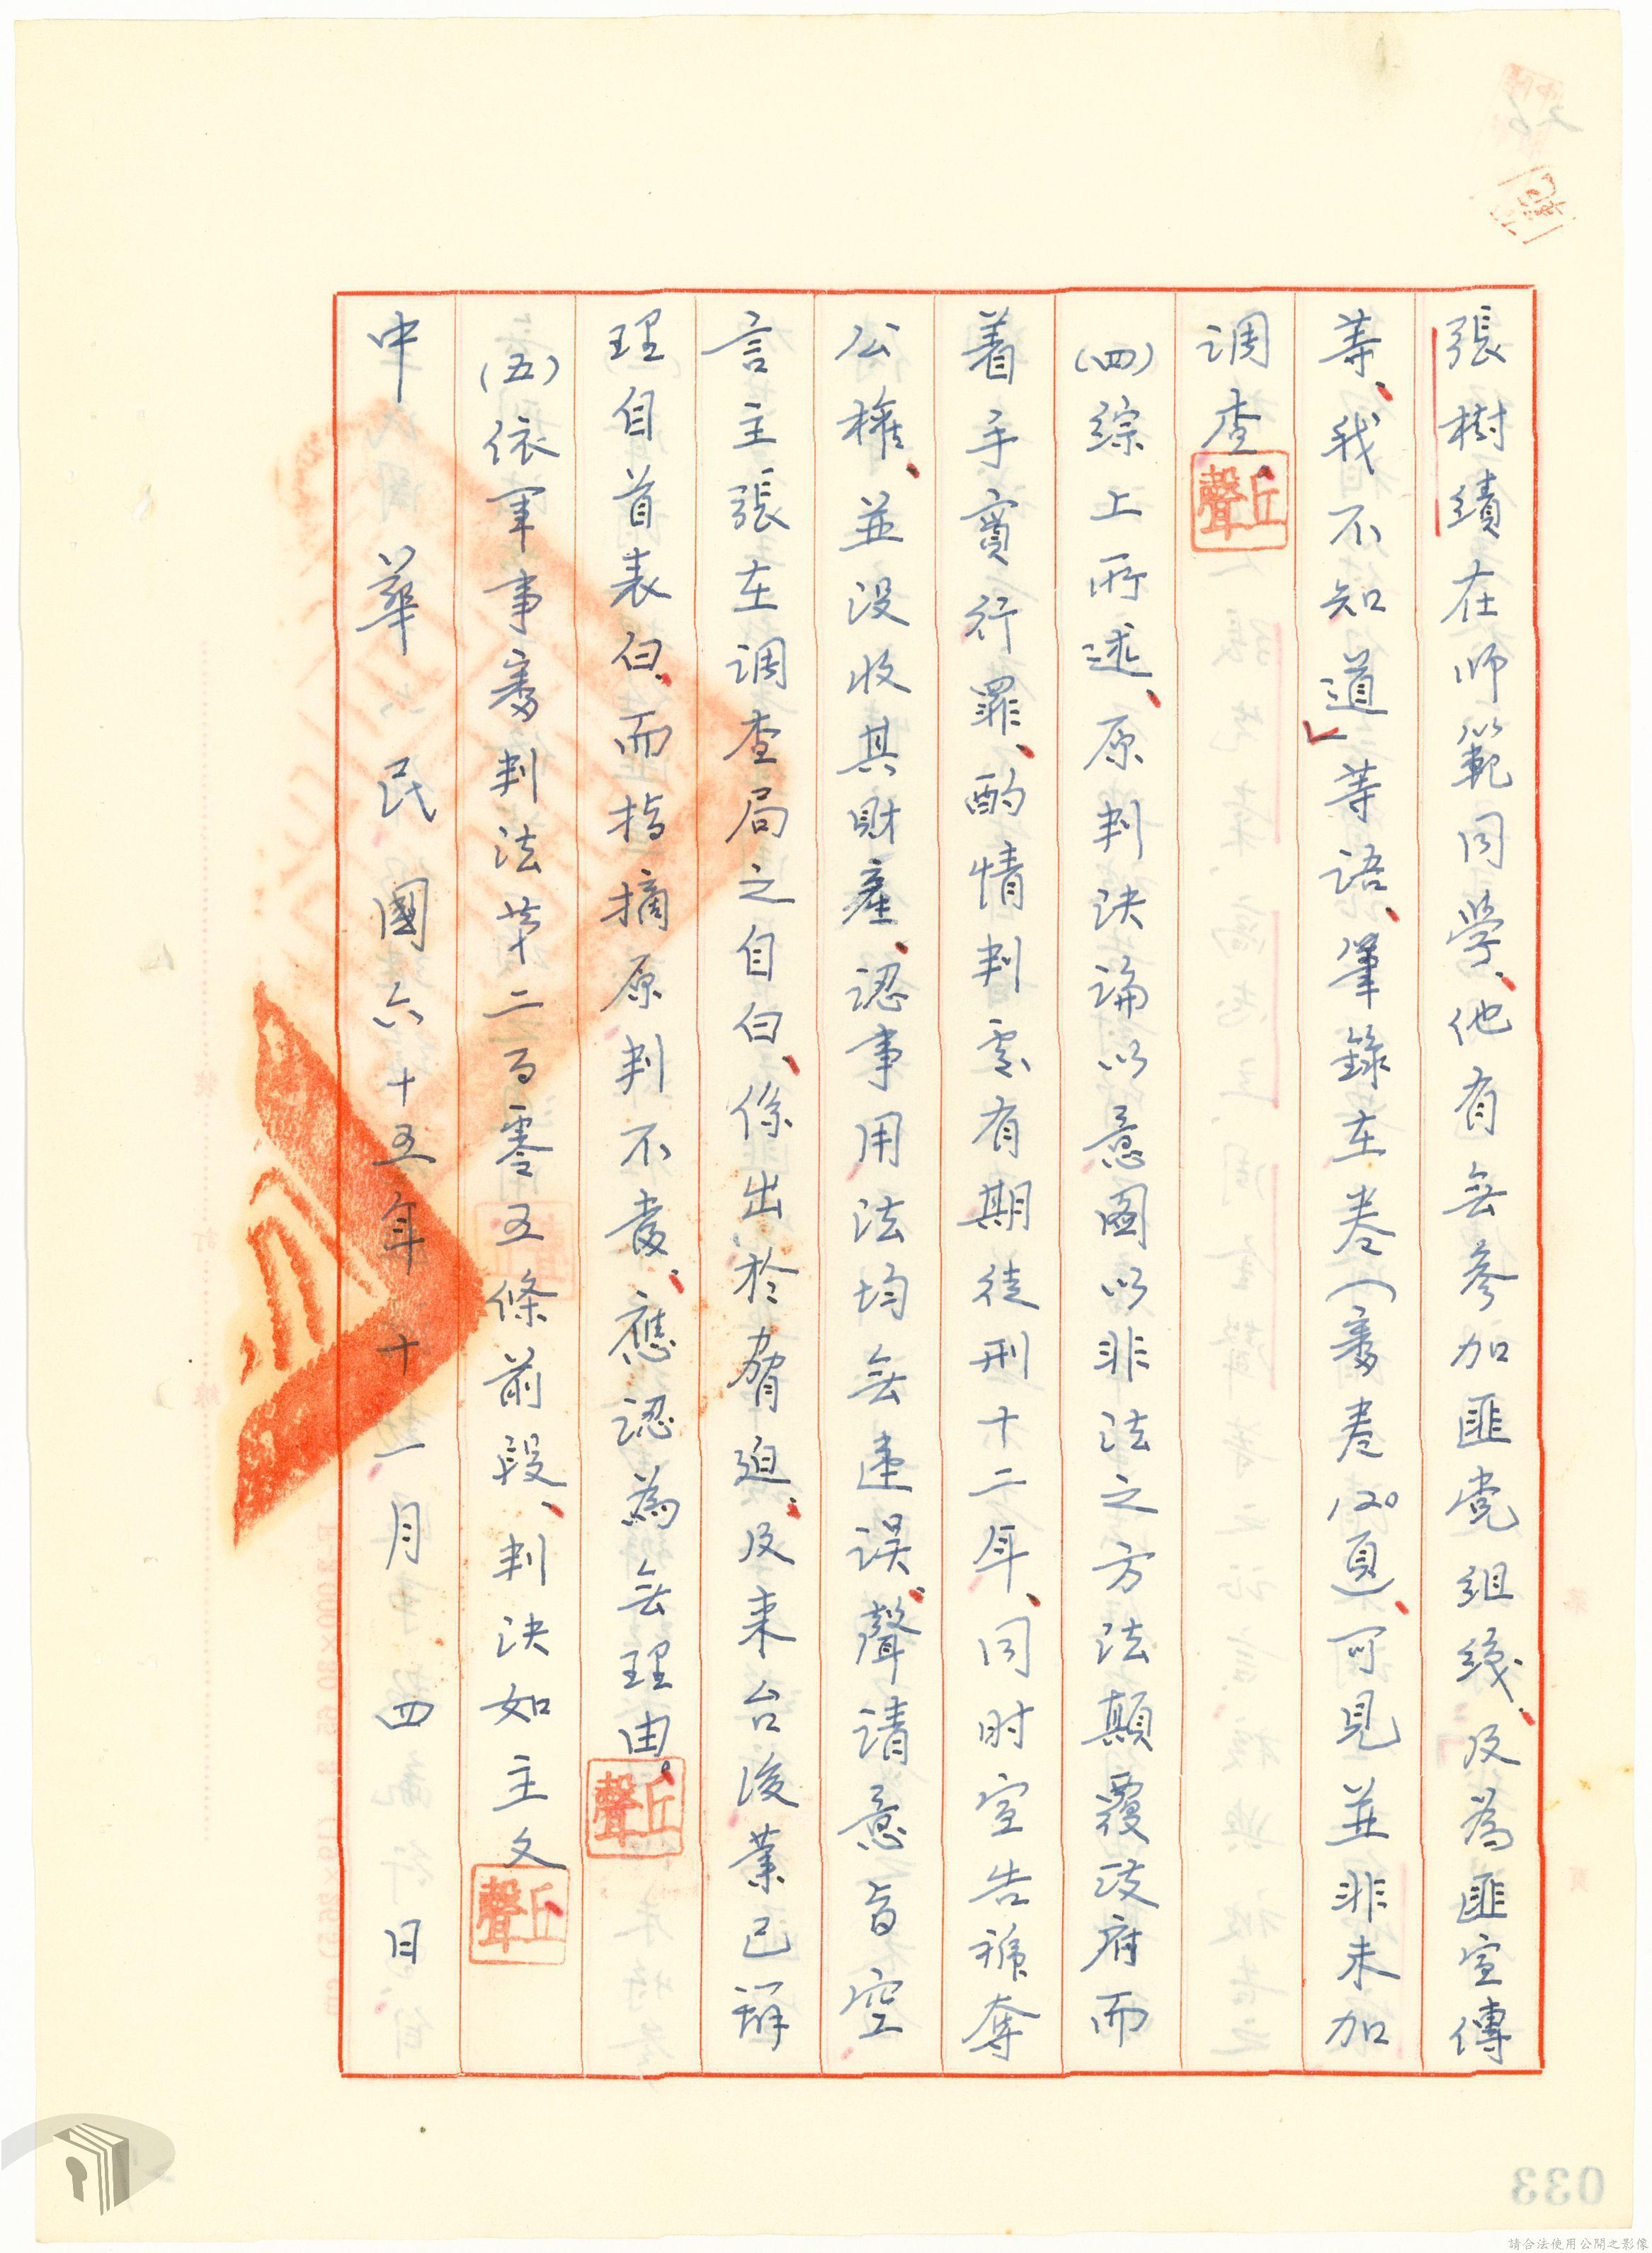 張樹績在師範同學、他有無參加匪党组綫、及為匪宣傳
等、我不知道」等語、筆錄在卷(審卷120頁)、可見並非未加
调查。
(四)綜上所述、原判决論以意圖以非法之方法顛覆政府而
着手實行罪、酌情判處有期徒刑十二年、同时宣告褫奪
公權、並没收其財產、認事用法均無違误、聲请意旨空
言主張在调查局之自白、係出於脅迫、及来台後業已辦
理自首表白、而指摘原判不當、應認為無理由。
(五)依軍事審判法第二百零五條前段、判决如主文
中華民國六十五年十一月四日
丘聲
丘聲
丘聲
033
請合法使用公開之影像